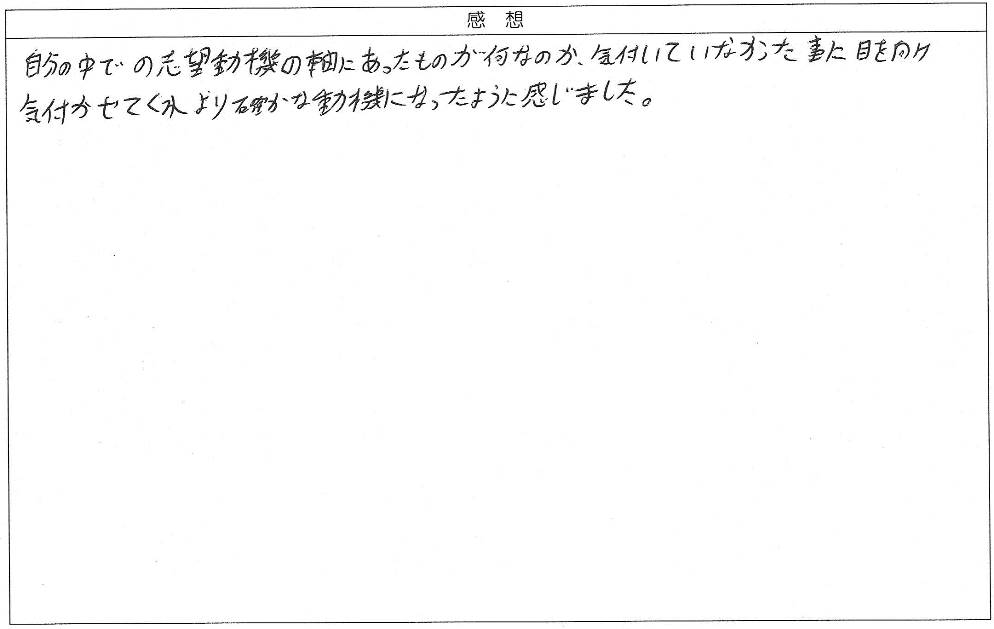 感想
自分の中での志望動機の軸にあったものが何なのか、気付いていなかった事に目を向け
気付かせてくれより確かな動機になったように感じました。